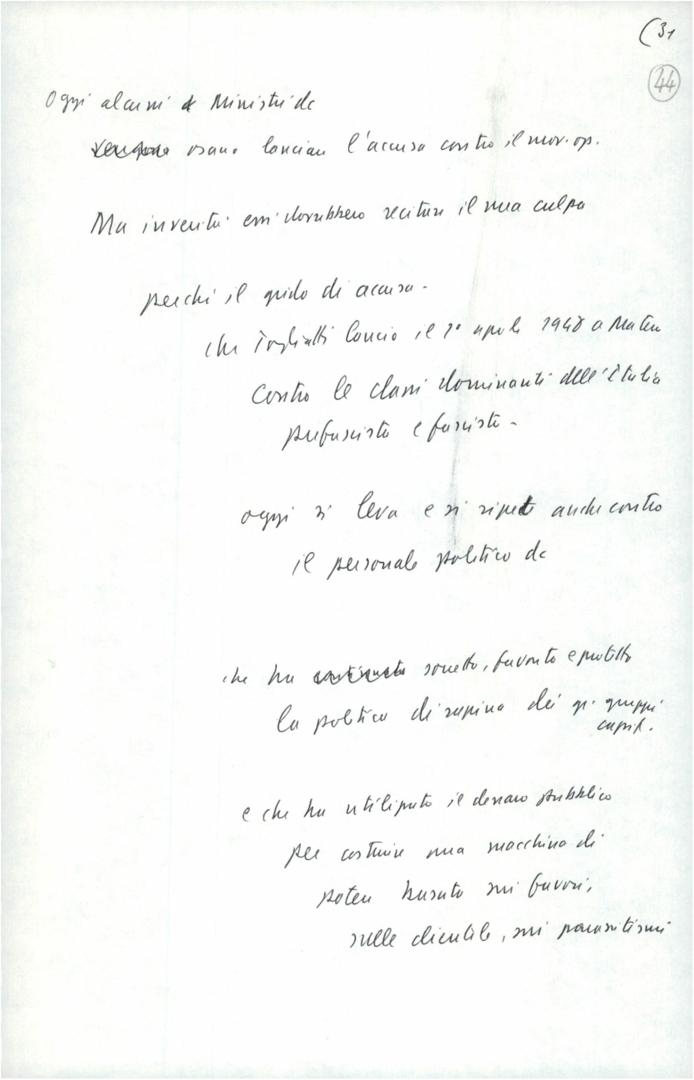 (31
44
Oggi alcuni Ministri dc
osano lanciare l'accusa contro il mov. op.
Ma in verità essi dovrebbero recitare il mea culpa
perché il grido di accusa -
che Togliatti lanciò il 1° aprile 1948 a Matera
contro le classi dominanti dell'Italia
prefascista e fascista -
oggi si leva e si ripete anche contro
il personale politico dc
che ha sorretto, favorito e protetto
la politica di rapina dei gr. gruppi
capit.
e che ha utilizzato il denaro pubblico
per costruire una macchina di
potere basata sui favori,
sulle clientele, sui parassitismi